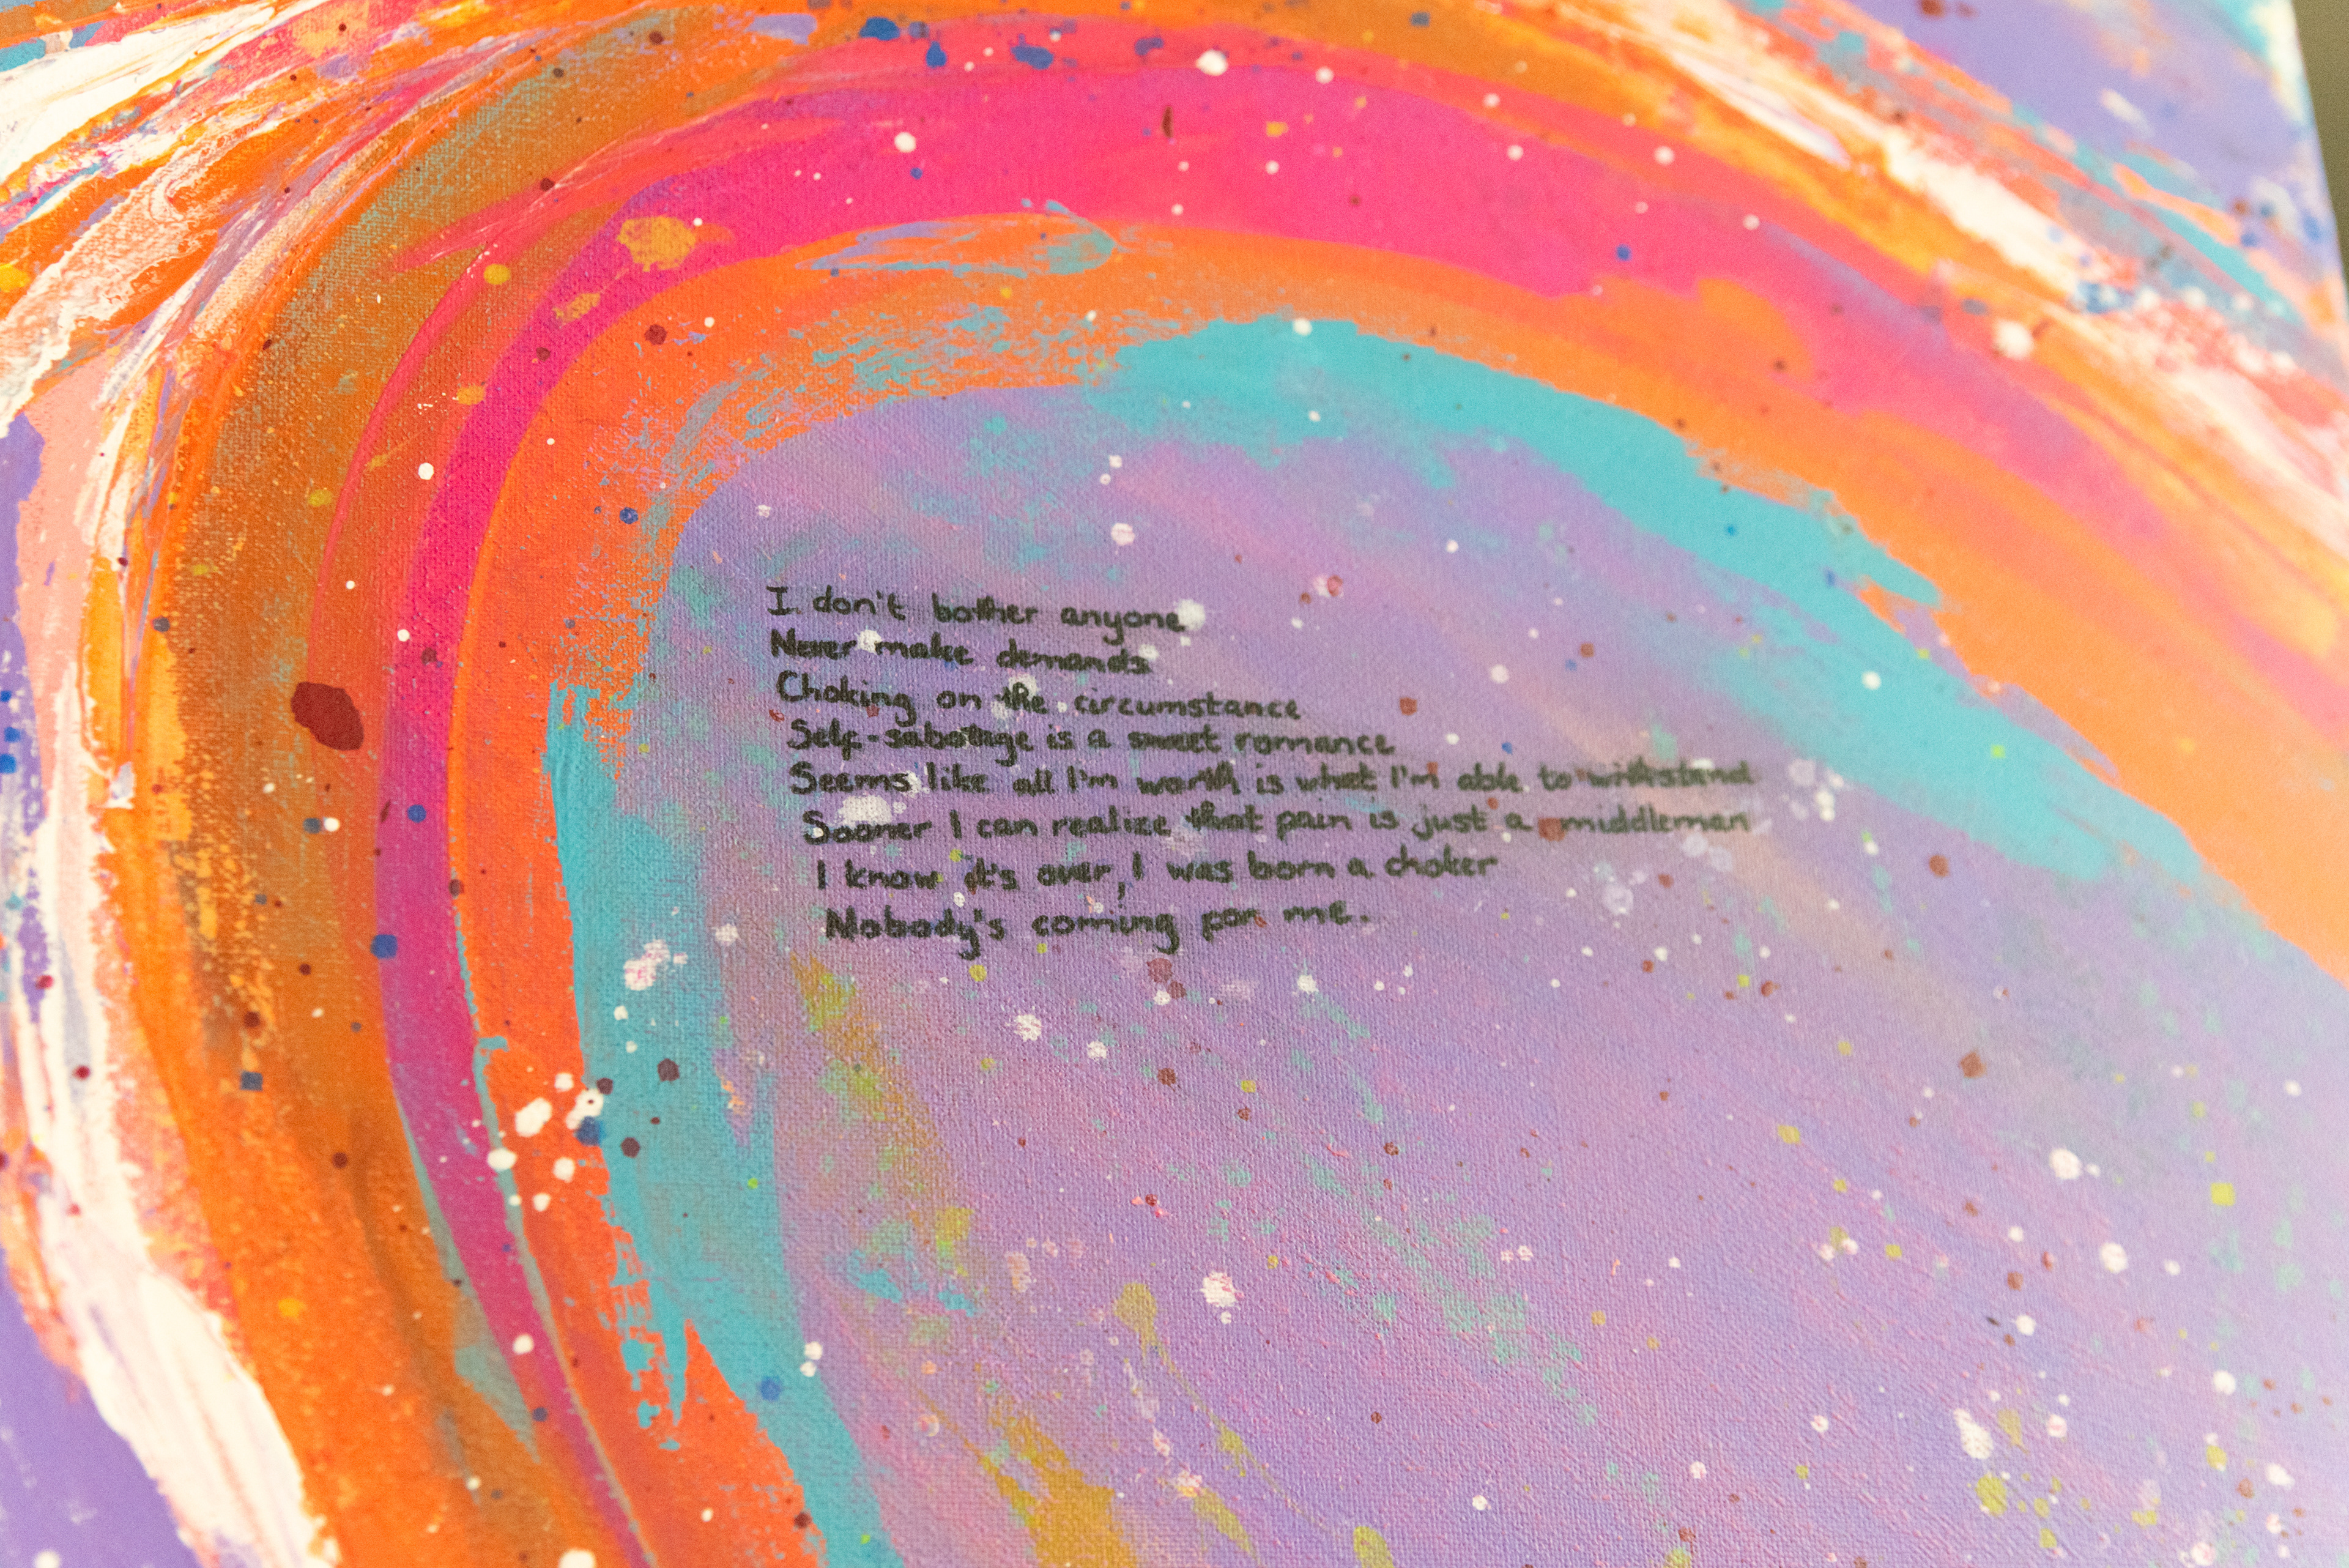 I don't bother anyone
Never make demands
Choking on the circumstance
Self-sabotage is a sweet romance
Seems like all I'm worth is what I'm able to withstand
Sooner I can realize that pain is just a middleman
I know it's over, I was born a choker
Nobody's coming for me.